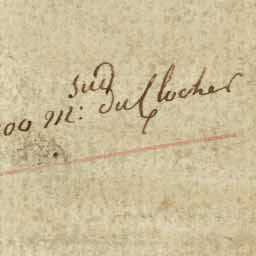 sud
00 m: du Clocher